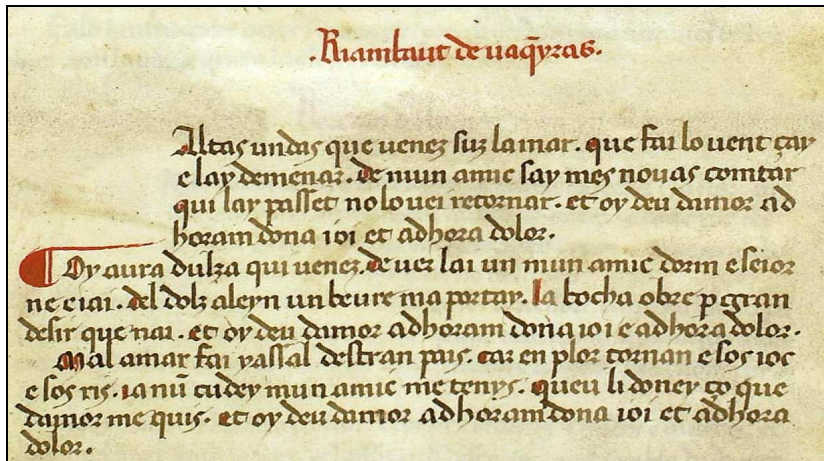 .Riambaut de uaq̄yras.
Altas undas que uenez suz la mar. que fai lo uent çay
e lay demenar. de mun amic say mes nouas comtar
qui lay passet no lo uei retornar. et oy deu damor ad
horam dona ioi et ad hora dolor.
Oy aura dulza qui uenez. de uer lai un mun amic dorm e seior
ne e iai. del dolz aleyn un beure ma portay. la bocha obre p gran
desir que nai. et oy deu damor ad horam dona ioi e ad hora dolor.
Mal amar fai uassal destran pais. car en plor tornan e sos ioc
e sos ris. ia nū cudey mun amic me tenys. queu li doney ço que
damor me quis. et oy deu damor ad horam dona ioi et ad hora
dolor.